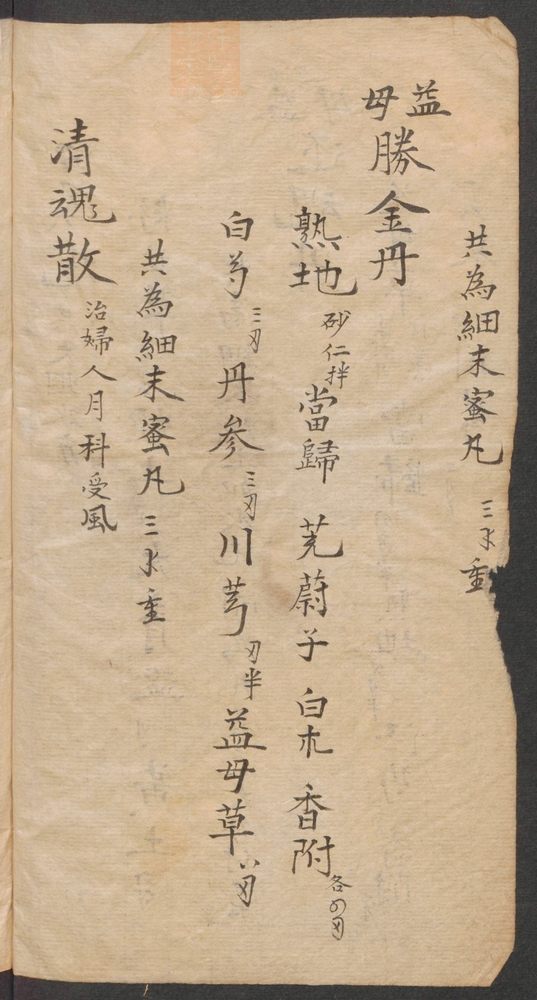 共為細末蜜丸 三水重
益母勝金丹
熟地 砂仁拌 當歸 茺蔚子 白朮 香附 各四刄
白芍 三刄 丹參 三刄 川芎 刄半 益母草 八刄
共為細末蜜丸三水重
清魂散 治婦人月科受風